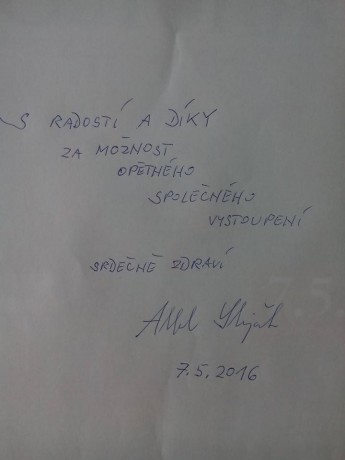 S RADOSTÍ A DÍKY
ZA MOŽNOST
OPĚTNÉHO
SPOLEČNÉHO
VYSTOUPENÍ
SRDEČNĚ ZDRAVÍ
7.5.2016